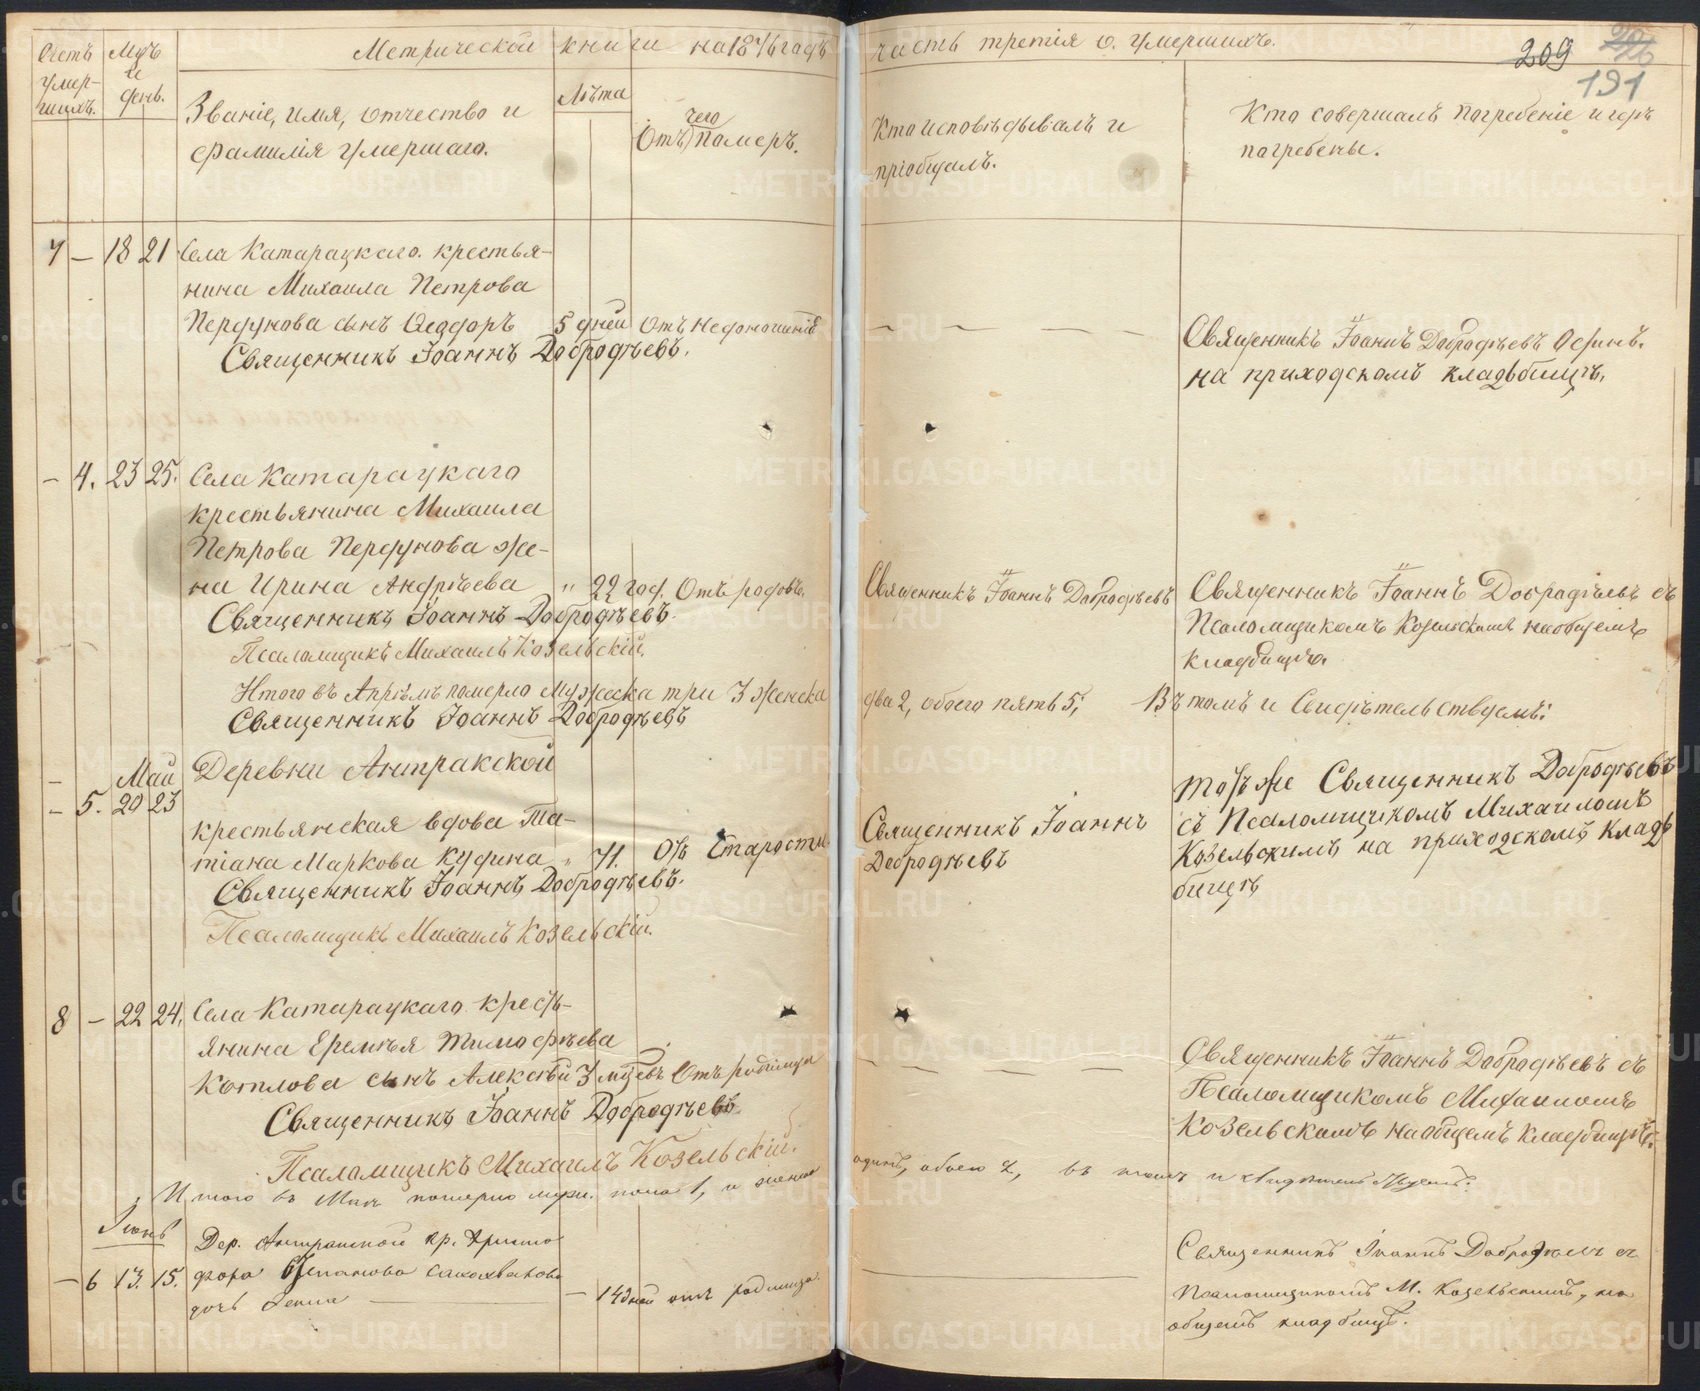 Счетъ умер-
шихъ.
Мцъ
и
день.
Метрической книги на 1876 годъ
часть третія о умершихъ.
209
26
191
Званіе, имя, отчество и
фамилія умершаго.
Лѣта
Отъ чего
померъ.
Кто исповѣдывалъ и
пріобщалъ.
Кто совершалъ погребеніе и гдѣ
погребены.
7 — 18 21 Села Катарацкаго крестья-
нина Михаила Петрова
Пердунова сынъ Ѳеодоръ 5 дней Отъ недоношенія
Священникъ Іоаннъ Добродѣевъ.
Священникъ Іоаннъ Добродѣевъ Одинъ.
на приходскомъ кладбищѣ.
— 4. 23 25. Села Катарацкаго
крестьянина Михаила
Петрова Пердунова же-
на Ирина Андрѣева " 22 год. Отъ родовъ.
Священникъ Іоаннъ Добродѣевъ.
Псаломщикъ Михаилъ Козельскій.
Священникъ Іоаннъ Добродѣевъ
Священникъ Іоаннъ Добродѣевъ съ
Псаломщикомъ Козельскимъ на общемъ
кладбищѣ.
Итого въ Апрѣлѣ померло мужска три 3 женска
два 2, обоего пять 5; Въ томъ и Свидѣтельствуемъ:
Священникъ Іоаннъ Добродѣевъ
Май
— 5. 20 23 Деревни Антракской
крестьянская вдова Та-
тіана Маркова Кудина " 71. Отъ Старости
Священникъ Іоаннъ Добродѣевъ.
Псаломщикъ Михаилъ Козельскій.
Священникъ Іоаннъ
Добродѣевъ
тотъ же Священникъ Добродѣевъ
съ Псаломщикомъ Михаиломъ
Козельскимъ на приходскомъ клад
бищѣ
8 — 22 24. Села Катарацкаго кресть-
янина Еремѣя Тимофѣева
Котлова сынъ Алексѣй 3 мцевъ Отъ родимца
Священникъ Іоаннъ Добродѣевъ.
Псаломщикъ Михаилъ Козельскій.
Священникъ Іоаннъ Добродѣевъ съ
Псаломщикомъ Михаиломъ
Козельскимъ на общемъ кладбищѣ.
Итого въ Маѣ померло муж. пола 1, и женска
одинъ, обоего 2, въ томъ и свидѣтельствуемъ:
Іюнь
— 6 13. 15. Дер. Антракской кр. Христо
фора Степанова
дочь — 14 дней отъ родимца.
Священникъ Іоаннъ Добродѣевъ съ
Псаломщикомъ М. Козельскимъ, на
общемъ кладбищѣ.
METRIKI.GASO-URAL.RU